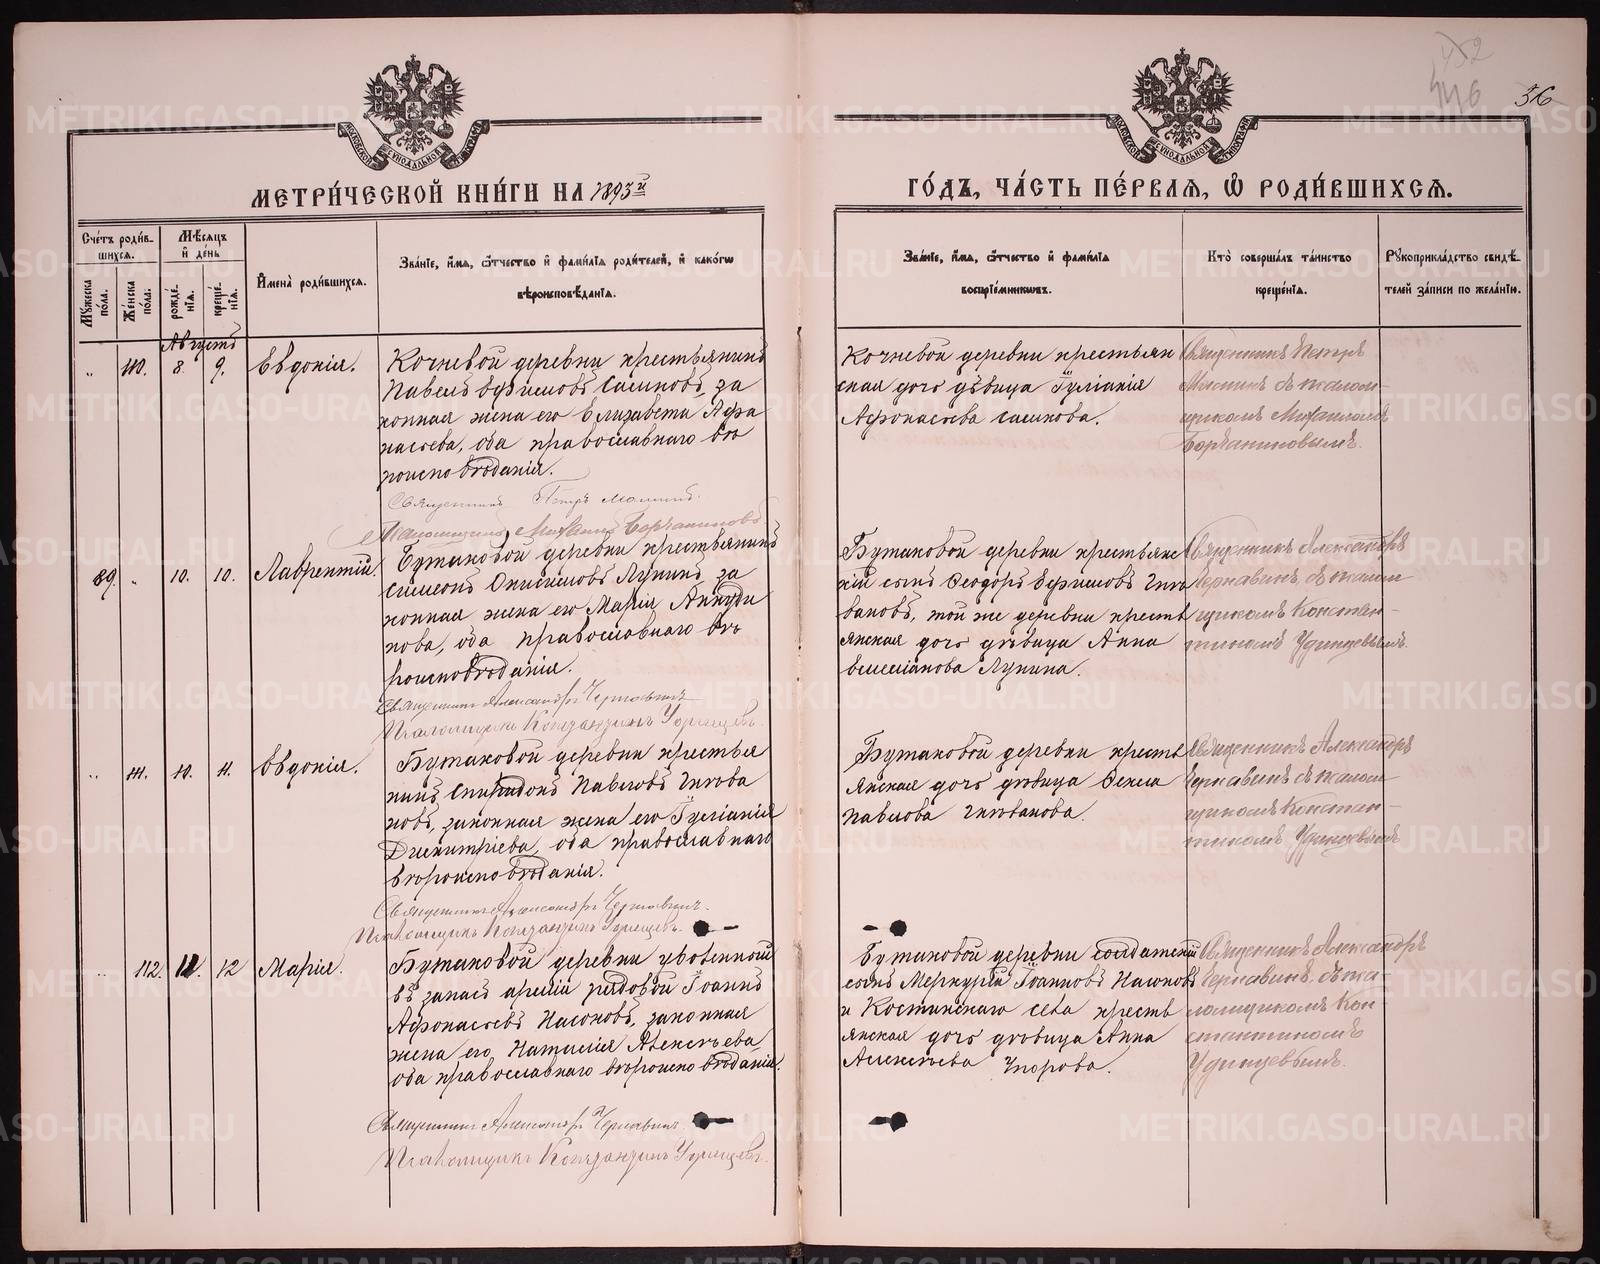 452
446
36
МОСКОВСКОЙ СѴНОДАЛЬНОЙ ТИПОГРАФІИ
МОСКОВСКОЙ СѴНОДАЛЬНОЙ ТИПОГРАФІИ
МЕТРИ́ЧЕСКОЙ КНИ́ГИ НА 1893й
ГО́ДЪ, ЧА́СТЬ ПЕ́РВАЯ, Ѽ РОДИ́ВШИХСЯ.
Сче́тъ роди́вшихся.
Мꙋжеска пола.
Же́нска пола.
Мѣ́сяцъ и҆ де́нь
рожде́нїя.
креще́нїя.
И҆мена̀ роди́вшихся.
Зва́нїе, и҆́мя, ѻ҆́тчество и҆ фами́лїя роди́телей, и҆ како́гѡ
вѣроисповѣ́данїя.
Зва́нїе, и҆́мя, ѻ҆́тчество и҆ фами́лїя
воспрїе́мникѡвъ.
Кто̀ соверша́лъ та́инство
креще́нїя.
Рꙋкоприкла́дство свидѣ́телей за́писи по жела́нїю.
Августъ
„ 110. 8. 9. Евдокія.
Кочневой деревни крестьянинъ
Павелъ Ефимовъ Сасиновъ, за
конная жена его Елизавета Афа
насьева, оба православнаго вѣ
роисповѣданія.
Священникъ Петръ Мамин.
Псаломщикъ Михаилъ Борчаниновъ
Кочневой деревни крестьян
ская дочь дѣвица Іуліанія
Афонасьева Сасинова.
Священникъ Петръ
Маминъ съ псалом-
щикомъ Михаиломъ
Борчаниновымъ.
89. „ 10. 10. Лаврентій.
Бутаковой деревни крестьянинъ
Симеонъ Онисимовъ Лупинъ, за
конная жена его Марія
нова, оба православнаго вѣ
роисповѣданія.
Священникъ Александръ Чернавинъ
Псаломщикъ Константинъ Удинцевъ.
Бутаковой деревни крестьянс
кій сынъ Ѳеодоръ Ефимовъ
вановъ, той же деревни кресть
янская дочь дѣвица Анна
Емеліанова Лупина.
Священникъ Александръ
Чернавинъ съ псалом
щикомъ Констан-
тиномъ Удинцевымъ.
„ 111. 10. 11. Евдокія.
Бутаковой деревни крестья
нинъ Спиридонъ Павловъ
новъ, законная жена его Іуліанія
Димитріева, оба православнаго
вѣроисповѣданія.
Священникъ Александръ Чернавинъ.
Псаломщикъ Константинъ Удинцевъ.
Бутаковой деревни кресть
янская дочь дѣвица Ѳекла
Павлова
Священникъ Александръ
Чернавинъ съ псалом
щикомъ Констан-
тиномъ Удинцевымъ
„ 112. 11. 12 Марія.
Бутаковой деревни уволенный
въ запасъ арміи рядовой Іоаннъ
Афонасьевъ Насоновъ, законная
жена его Наталія Алексѣева,
оба православнаго вѣроисповѣданія.
Священникъ Александръ Чернавинъ
Псаломщикъ Константинъ Удинцевъ.
Бутаковой деревни солдатскій
сынъ Меркурій Іоанновъ Насоновъ
и Костинскаго села кресть
янская дочь дѣвица Анна
Алексѣева
Священникъ Александръ
Чернавинъ съ пса-
ломщикомъ Кон
стантиномъ
Удинцевымъ.